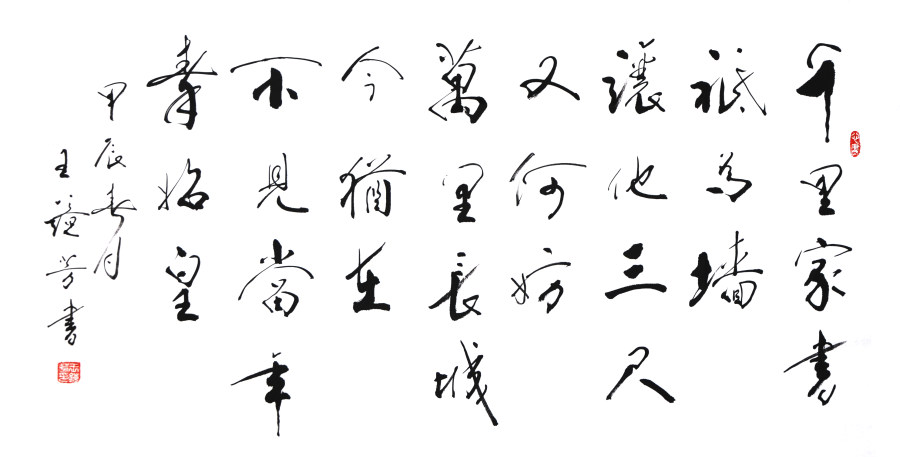 千里家書
祗為墻
讓他三尺
又何妨
萬里長城
今猶在
不見當年
秦始皇
甲辰春月
王芳書